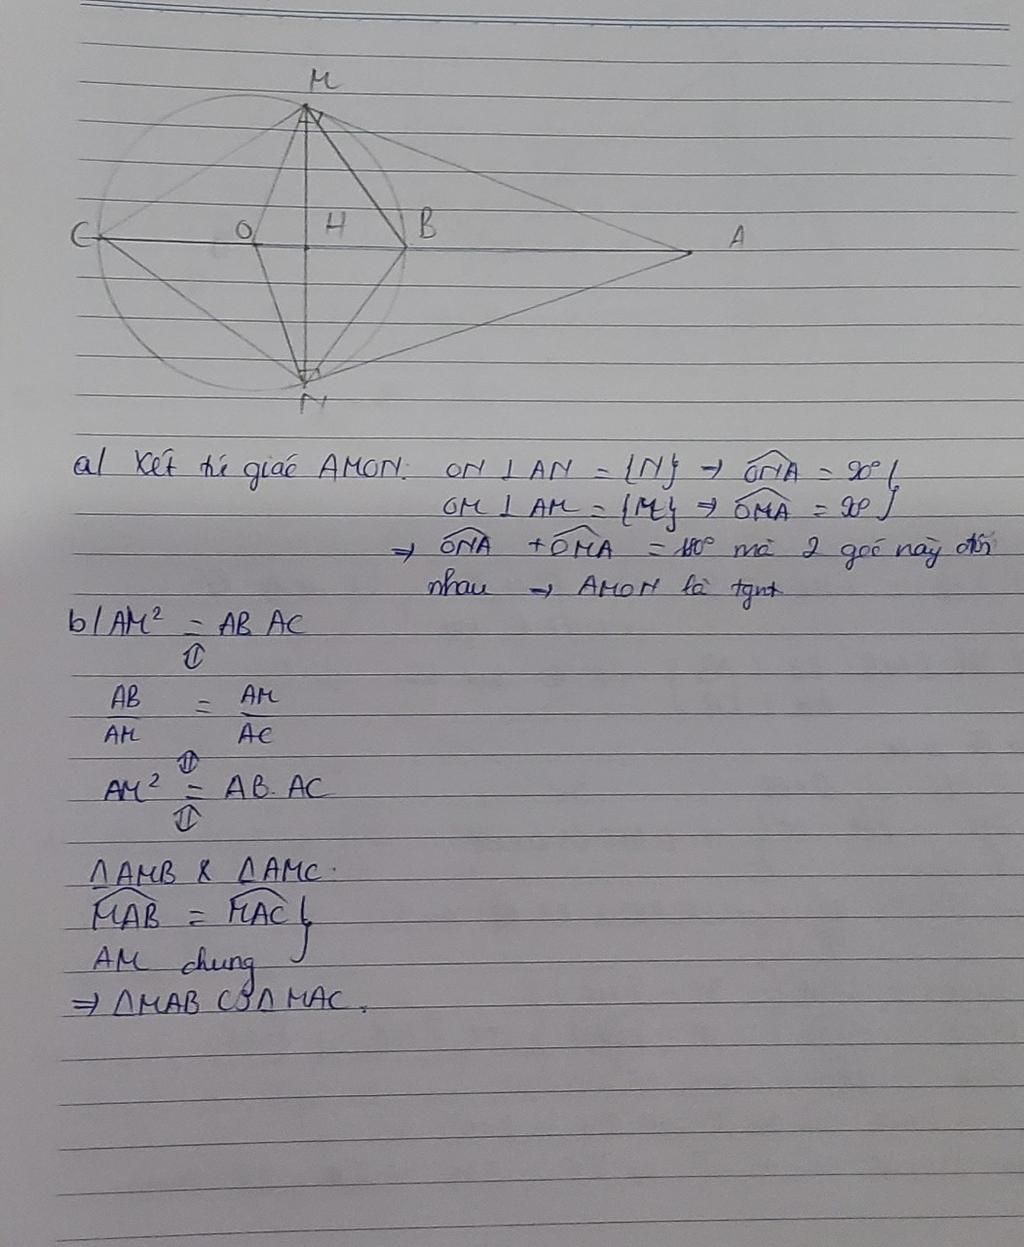 M
C O H B A
N
a/ Xét tứ giác AMON: ON ⊥ AN = {N} → ONA = 90° }
OM ⊥ AM = {M} → OMA = 90° }
⇒ ONA + OMA = 180° mà 2 góc này đối
nhau → AMON là tgnt
b/ AM² = AB AC
⇕
AB/AM = AM/AC
⇕
AM² = AB. AC
⇕
ΔAMB & ΔAMC.
MAB = MAC }
AM chung
⇒ ΔMAB ∽ ΔMAC.